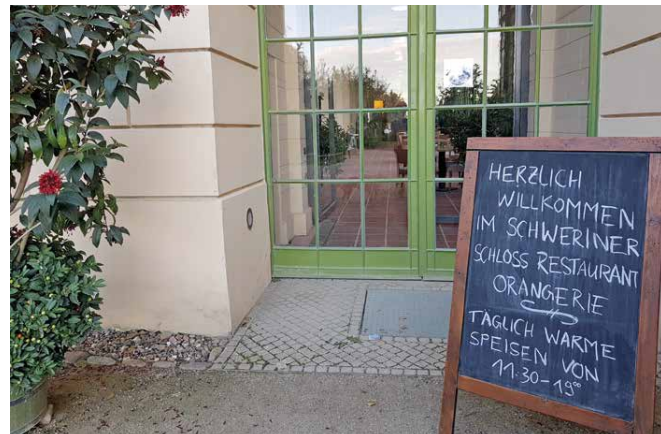 HERZLICH
WILLKOMMEN
IM SCHWERINER
SCHLOSS RESTAURANT
ORANGERIE
TÄGLICH WARME
SPEISEN VON
11:30-19⁰⁰